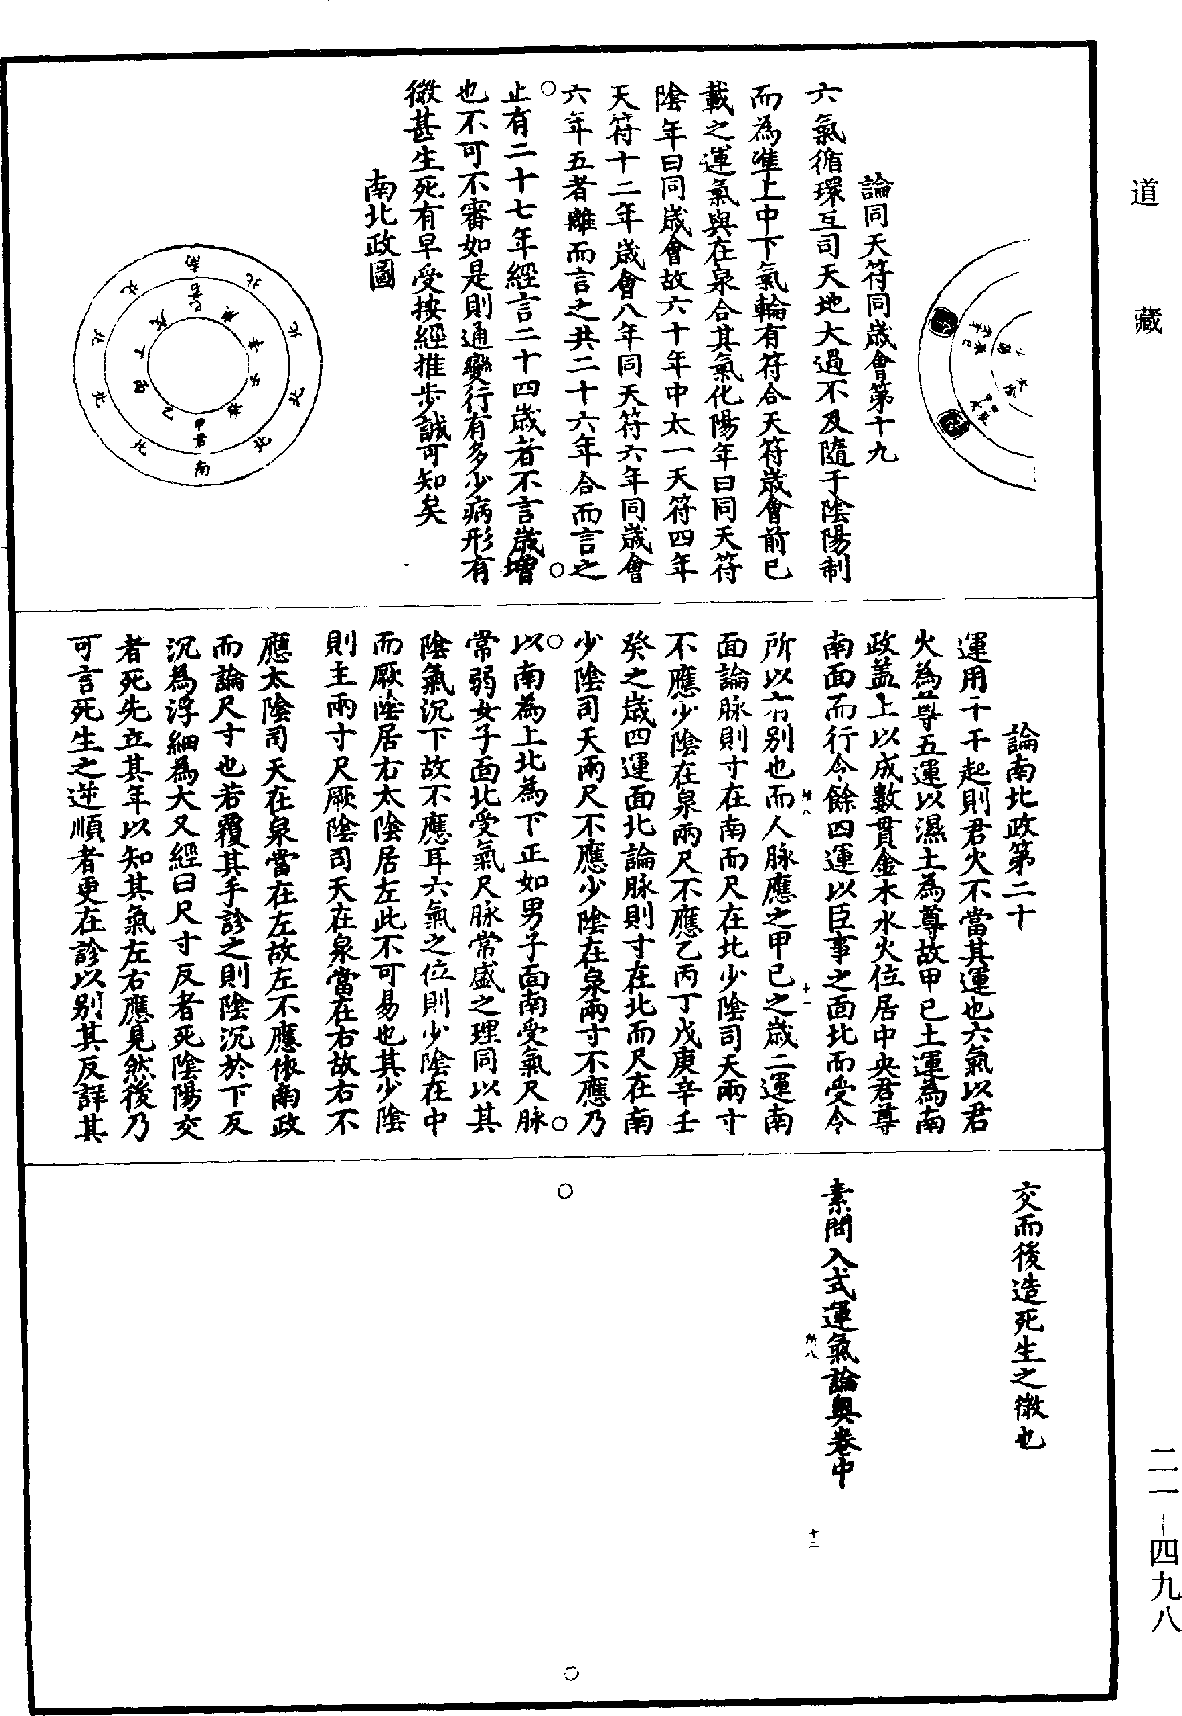 道藏
論同天符同歲會第十九
六氣循環互司天地大過不及隨于陰陽制
而為準上中下氣輪有符合天符歲會前已
載之運氣與在泉合其氣化陽年曰同天符
陰年曰同歲會故六十年中太一天符四年
天符十二年歲會八年同天符六年同歲會
六年五者離而言之共二十六年合而言之
止有二十七年經言二十四歲者不言歲增
也不可不審如是則通變行有多少病形有
微甚生死有早受按經推步誠可知矣
南北政圖
論南北政第二十
運用十干起則君火不當其運也六氣以君
火為尊五運以濕土為尊故甲已土運為南
政蓋土以成數貫金木水火位居中央君尊
南面而行令餘四運以臣事之面北而受令
所以有別也而人脉應之甲已之歲二運南
面論脉則寸在南而尺在北少陰司天兩寸
不應少陰在泉兩尺不應乙丙丁戊庚辛壬
癸之歲四運面北論脉則寸在北而尺在南
少陰司天兩尺不應少陰在泉兩寸不應乃
以南為上北為下正如男子面南受氣尺脉
常弱女子面北受氣尺脉常盛之理同以其
陰氣沉下故不應耳六氣之位則少陰在中
而厥陰居右太陰居左此不可易也其少陰
則主兩寸尺厥陰司天在泉當在右故右不
應太陰司天在泉當在左故左不應依南政
而論尺寸也若覆其手診之則陰沉於下反
沉為浮細為大又經曰尺寸反者死陰陽交
者死先立其年以知其氣左右應見然後乃
可言死生之逆順者更在診以別其反詳其
交而後造死生之微也
素問入式運氣論奧卷中
十二
二一—四九八